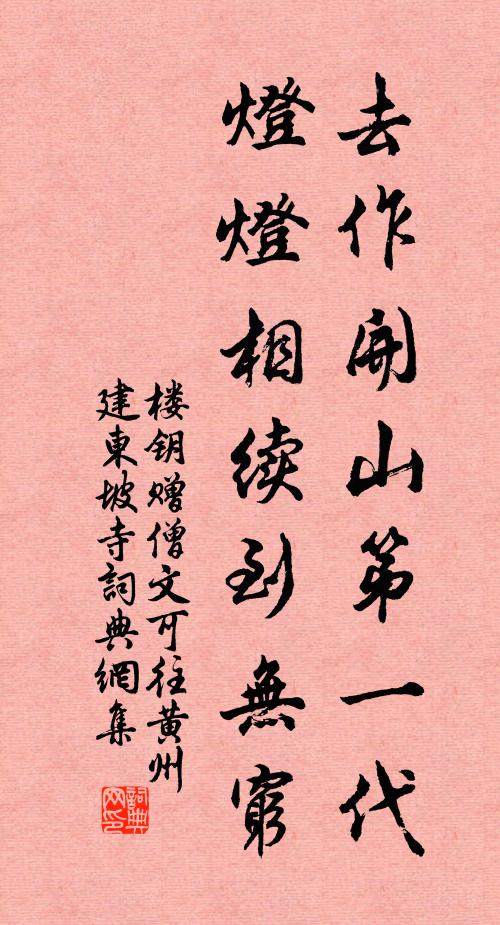 去作開山第一代
燈燈相續到無窮
楼钥赠僧文可往黄州
建東坡寺詞典網集
詞典网印